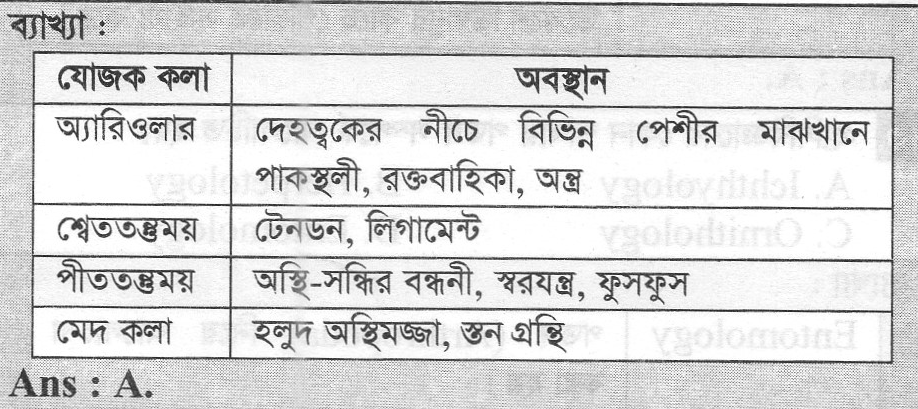 ব্যাখ্যা :
যোজক কলা অবস্থান
অ্যারিওলার দেহত্বকের নীচে বিভিন্ন পেশীর মাঝখানে
পাকস্থলী, রক্তবাহিকা, অন্ত্র
শ্বেততন্তুময় টেনডন, লিগামেন্ট
পীততন্তুময় অস্থি-সন্ধির বন্ধনী, স্বরযন্ত্র, ফুসফুস
মেদ কলা হলুদ অস্থিমজ্জা, স্তন গ্রন্থি
Ans : A.